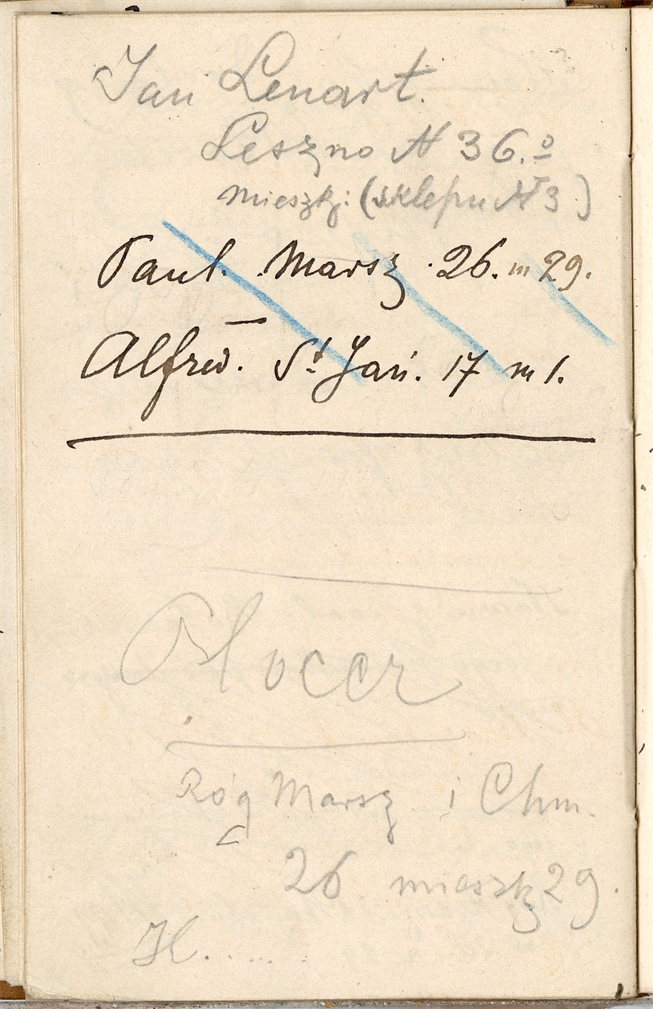 Jan Lenart.
Leszno N 36.o
mieszk: (sklepu N 3)
Paul. Marsz. 26. m 29.
Alfred. St Jań. 17 m 1.
Róg Marsz. i Chm.
26 mieszk 29.
H.....